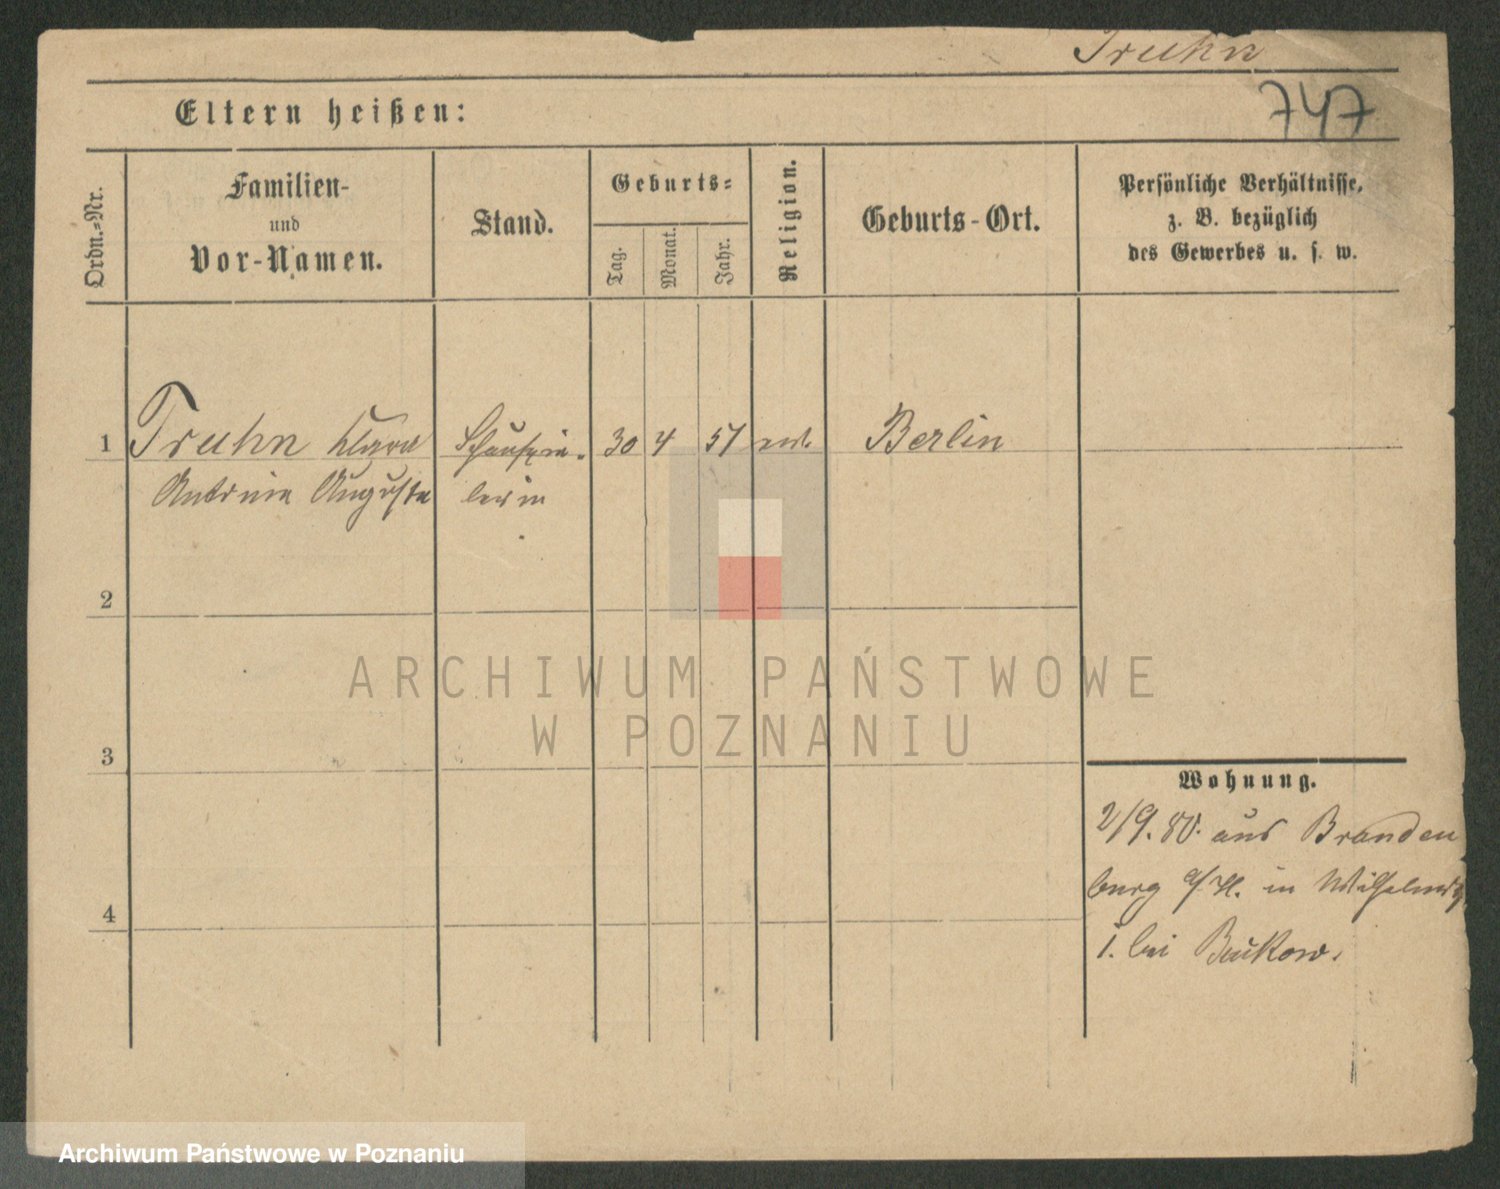 Truhn
747
Eltern heißen:
Ordn.=Nr.
Familien-
und
Vor-Namen.
Stand.
Geburts=
Tag.
Monat.
Jahr.
Religion.
Geburts-Ort.
Persönliche Verhältnisse,
z. B. bezüglich
des Gewerbes u. s. w.
1 Truhn Klara Schauspie- 30 4 51 Berlin
Antonie Auguste lerin
2
3
4
Wohnung.
2/9. 80. aus Branden
burg a/H. in
bei
ARCHIWUM PAŃSTWOWE
W POZNANIU
Archiwum Państwowe w Poznaniu